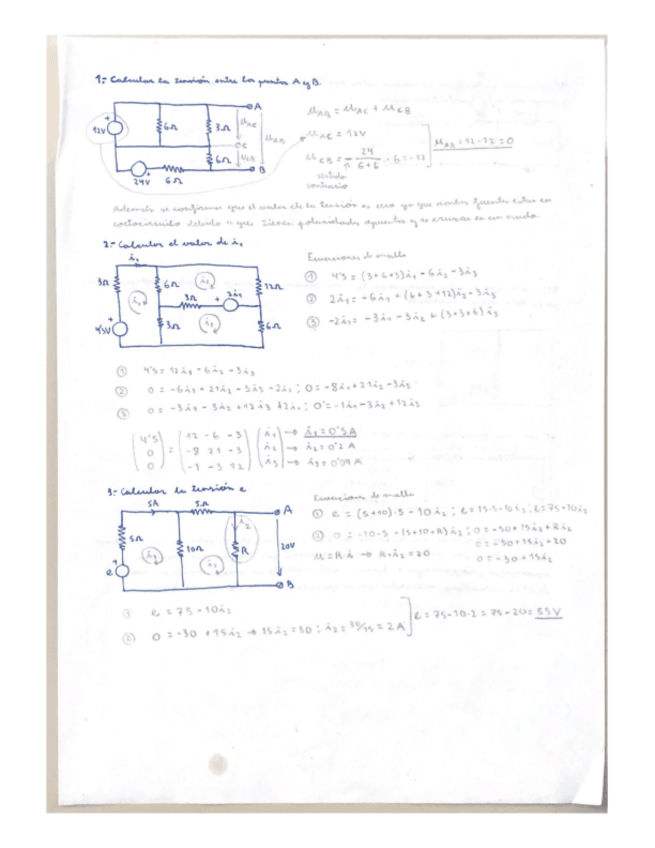 1.- Calcular la tensión entre los puntos A y B.
A
12V
6Ω
3Ω
μAC
μAB
C
6Ω
μCB
24V
6Ω
B
μAB = μAC + μCB
μAC = 12V
μCB = - 24/(6+6) · 6 = -12
sentido
contrario
μAB = 12-12 = 0
Además se confirma que el valor de la tensión es cero ya que ambas fuentes están en
cortocircuito debido a que tienen polaridades opuestas y se cruzan en un nudo.
2.- Calcular el valor de i₁
i₁
3Ω
6Ω
i₂
12Ω
i₁
3Ω
2i₁
4'5V
3Ω
i₃
6Ω
Ecuaciones de malla
① 4'5 = (3+6+3)i₁ - 6i₂ - 3i₃
② 2i₁ = -6i₁ + (6+3+12)i₂ - 3i₃
③ -2i₁ = -3i₁ - 3i₂ + (3+3+6)i₃
① 4'5 = 12i₁ - 6i₂ - 3i₃
② 0 = -6i₁ + 21i₂ - 3i₃ - 2i₁ ; 0 = -8i₁ + 21i₂ - 3i₃
③ 0 = -3i₁ - 3i₂ + 12i₃ + 2i₁ ; 0 = -1i₁ - 3i₂ + 12i₃
4'5 = 12 -6 -3 i₁ → i₁ = 0'5 A
0 -8 21 -3 i₂ → i₂ = 0'2 A
0 -1 -3 12 i₃ → i₃ = 0'09 A
3.- Calcular la tensión e
5A
5Ω
A
5Ω
i₁
10Ω
i₂
R
20V
e
B
Ecuaciones de malla
① e = (5+10)·5 - 10i₂ ; e = 15·5 - 10i₂ ; e = 75 - 10i₂
② 0 = -10·5 + (5+10+R)i₂ ; 0 = -50 + 15i₂ + Ri₂
0 = -50 + 15i₂ + 20
μ = R·i → R·i₂ = 20
0 = -30 + 15i₂
① e = 75 - 10i₂
② 0 = -30 + 15i₂ → 15i₂ = 30 ; i₂ = 30/15 = 2A
e = 75 - 10·2 = 75 - 20 = 55V